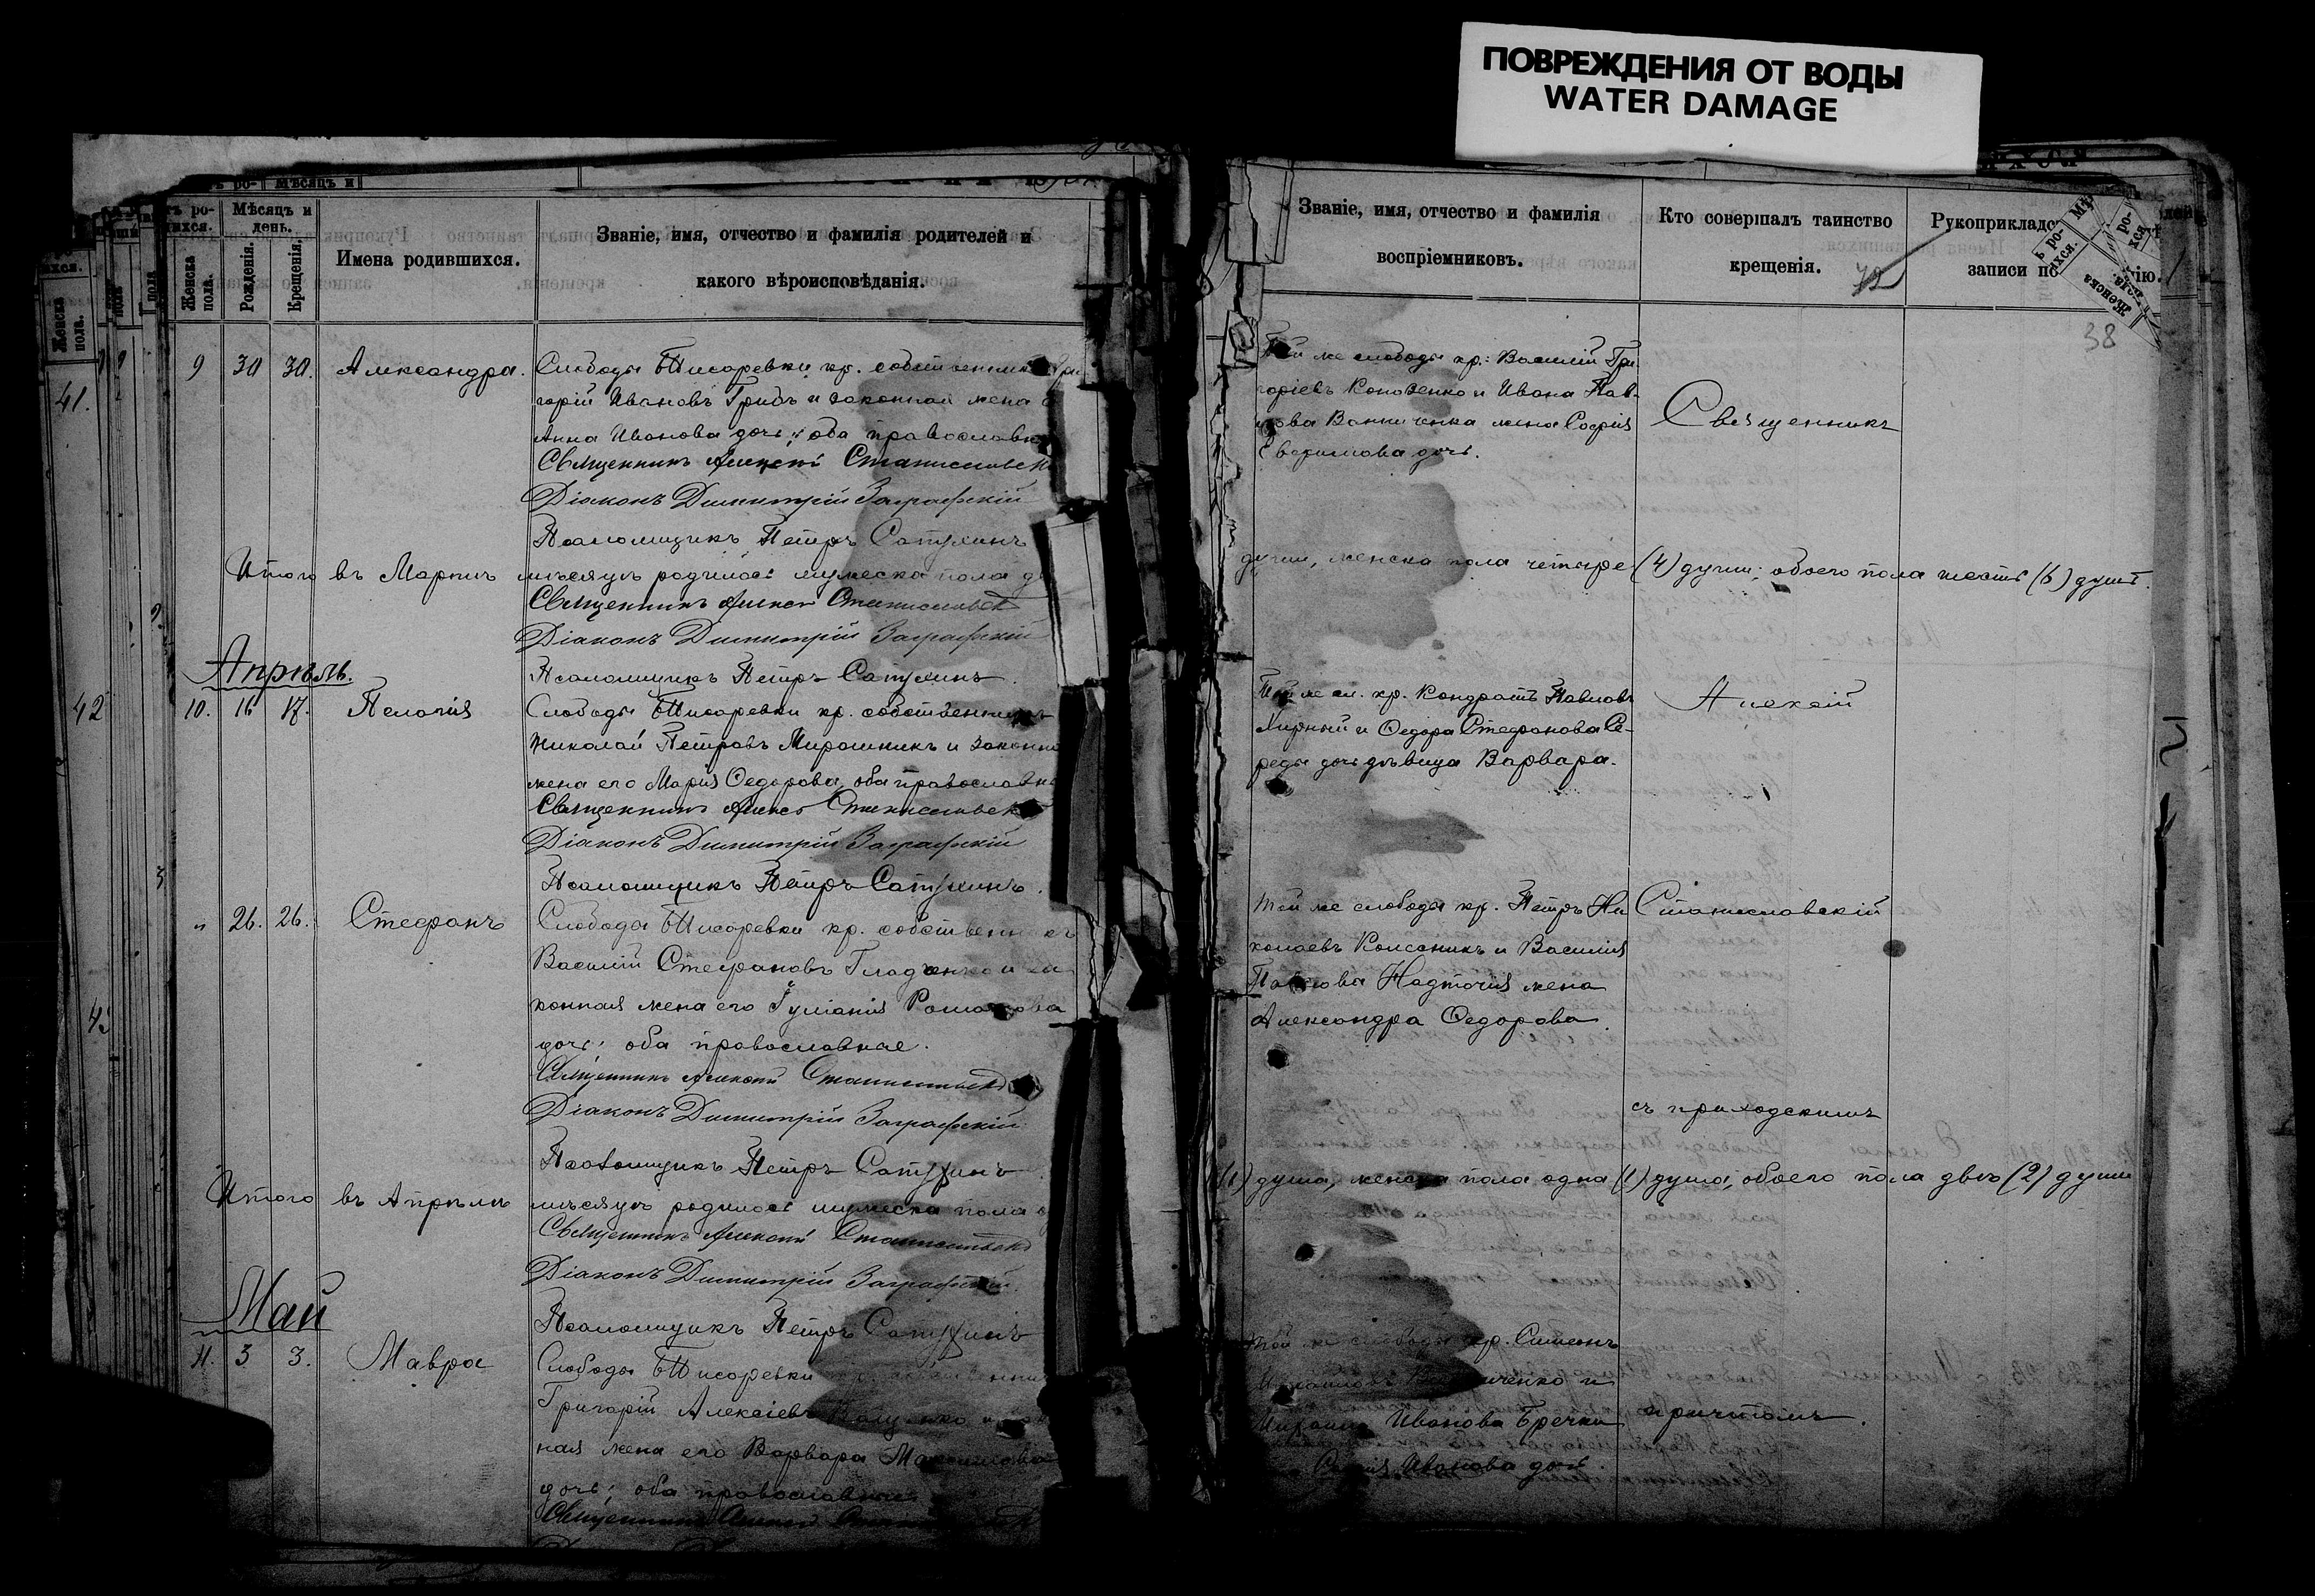 ПОВРЕЖДЕНИЯ ОТ ВОДЫ
WATER DAMAGE
Женска пола.
Мѣсяцъ и день.
Рожденія.
Крещенія.
Имена родившихся.
Званіе, имя, отчество и фамилія родителей и
какого вѣроисповѣданія.
41.
9 30 30. Александра.
Слободы Писаревки кр. собственникъ Гри
горій Ивановъ Грибъ и законная жена
Анна Иванова дочь; оба православн
Священникъ Алексѣй Станиславск
Діаконъ Димитрій Заграфскій
Псаломщикъ Петръ Сатухинъ
Итого въ Мартѣ мѣсяцѣ родилось мужеска пола
Священникъ Алексѣй Станиславск
Діаконъ Димитрій Заграфскій
Апрѣль.
Псаломщикъ Петръ Сатухинъ.
42
10. 16 17. Пелагія
Слободы Писаревки кр. собственникъ
Николай Петровъ Мирошникъ и законна
жена его Марія Ѳедорова, оба православн
Священникъ Алексѣй Станиславск
Діаконъ Димитрій Заграфскій
Псаломщикъ Петръ Сатухинъ.
„ 26. 26. Стефанъ
Слободы Писаревки кр. собственникъ
Василій Стефановъ Гладченко и за
конная жена его Іуліанія
дочь; оба православные.
Священникъ Алексѣй Станиславск
Діаконъ Димитрій Заграфскій
Псаломщикъ Петръ Сатухинъ
Итого въ Апрѣлѣ мѣсяцѣ родилось мужеска пола
Священникъ Алексѣй Станиславск
Діаконъ Димитрій Заграфскій
Май
Псаломщикъ Петръ Сатухинъ
11. 3 3. Мавра
Слободы Писаревки
Григорій Алексіевъ
ная жена его Варвара Максимова
дочь; оба православные
Священникъ
Званіе, имя, отчество и фамилія
воспріемниковъ.
Кто совершалъ таинство
крещенія.
Рукоприкладс
записи по
38
Той же слободы кр: Василій Гри
горіевъ Коновенко и Ивана Пав-
лова Ванниченка жена Софія
дочь.
Священникъ
души, женска пола четыре (4) души; обоего пола шесть (6) душъ.
Той же сл. кр. Кондратъ Павловъ
Жирный и Ѳедора Стефанова Се-
реды дочь дѣвица Варвара.
Алексѣй
Той же слободы кр. Петръ Ни
колаевъ Колесникъ и Василія
Павлова Надточія жена
Александра Ѳедорова.
Станиславскій
съ приходскимъ
(1) душа, женска пола одна (1) душа; обоего пола двѣ (2) души
Той же слободы кр. Симеонъ
Михаила Иванова Бречки
Иванова дочь.
причтомъ.